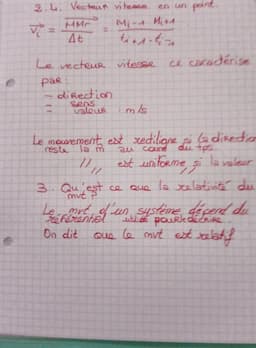 2.4. Vecteur vitesse en un point.
Vi = MM' / Δt = Mi-1 Mi+1 / ti+1 - ti-1
Le vecteur vitesse ce caractérise
par:
- direction
- sens
- valeur : m/s
Le mouvement est rectiligne si la direction
reste la m au cours du tps
// est uniforme si la valeur
// //
3. Qu'est ce que la relativité du
mvt?
Le mvt d'un système dépend du
référentiel utilisé pour décrire.
On dit que le mvt est relatif